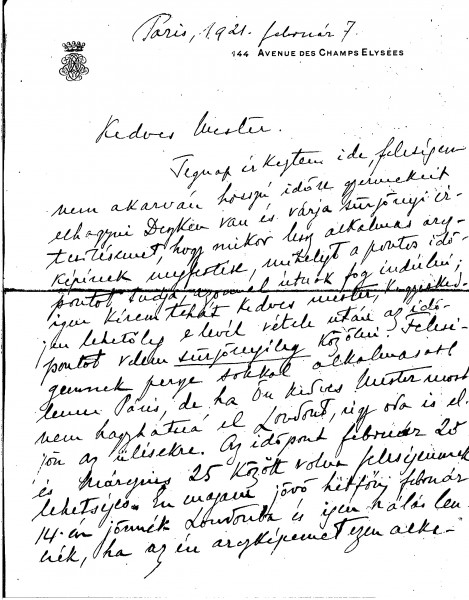 Paris, 1921. február 7.
144 AVENUE DES CHAMPS ELYSÉES
Kedves Mester.
Tegnap érkeztem ide, feleségem
nem akarván hosszú időre gyermekeit
elhagyni Degken van és várja sürgönyi ér-
tesítésemet, hogy mikor lesz alkalmas arc-
képének megfestése, mihelyt a pontos idő-
pontot tudja, azonnal útnak fog indulni;
igen kérem tehát kedves mester,
jan lehetőleg e levél vétele után az idő-
pontot velem sürgönyileg közölni. Felesé-
gemnek persze sokkal alkalmasabb
lenne Páris, de ha Ön kedves Mester most
nem hagyhatná el Londont, úgy oda is el-
jön az ülésekre. Az időpont február 20
és március 25 között volna feleségemnek
lehetséges. Én magam jövő hétfőn február
14.-én jönnék Londonba és igen hálás len-
nék, ha az én arcképemet ezen alka-